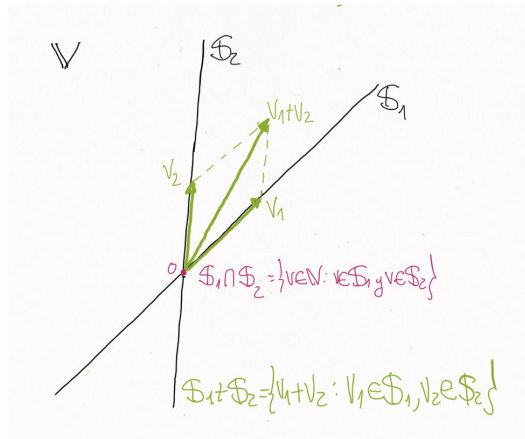 𝕍
𝕊₂
𝕊₁
v₁+v₂
v₂
v₁
0
𝕊₁∩𝕊₂={v∈𝕍: v∈𝕊₁ y v∈𝕊₂}
𝕊₁+𝕊₂={v₁+v₂ : v₁∈𝕊₁, v₂∈𝕊₂}